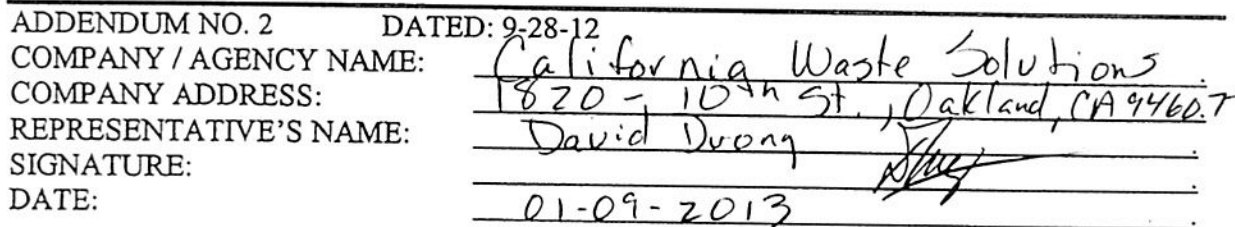 ADDENDUM NO. 2 DATED: 9-28-12
COMPANY / AGENCY NAME: California Waste Solutions.
COMPANY ADDRESS: 1820 - 10th St., Oakland, CA 94607
REPRESENTATIVE'S NAME: David Duong.
SIGNATURE: .
DATE: 01-09-2013.